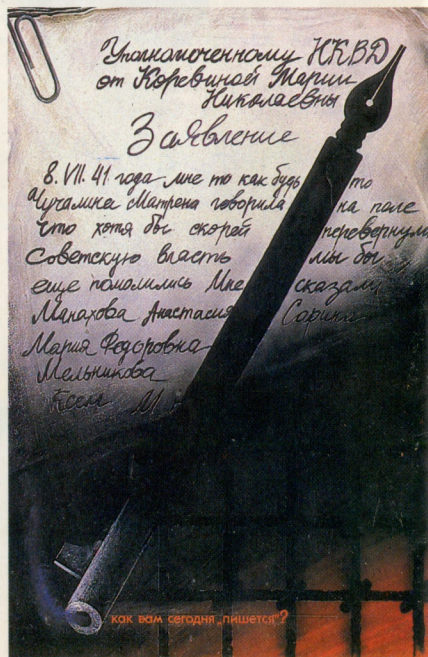 Уполномоченному НКВД
от Коревиной Марии
Николаевны
Заявление
8. VII. 41 года мне то как будь то
Чучалина Матрена говорила на поле
что хотя бы скорей перевернули
Советскую власть мы бы
еще помолились Мне сказали
Манахова Анастасия Сорина
Мария Федоровна
Мельникова
как вам сегодня „пишется"?